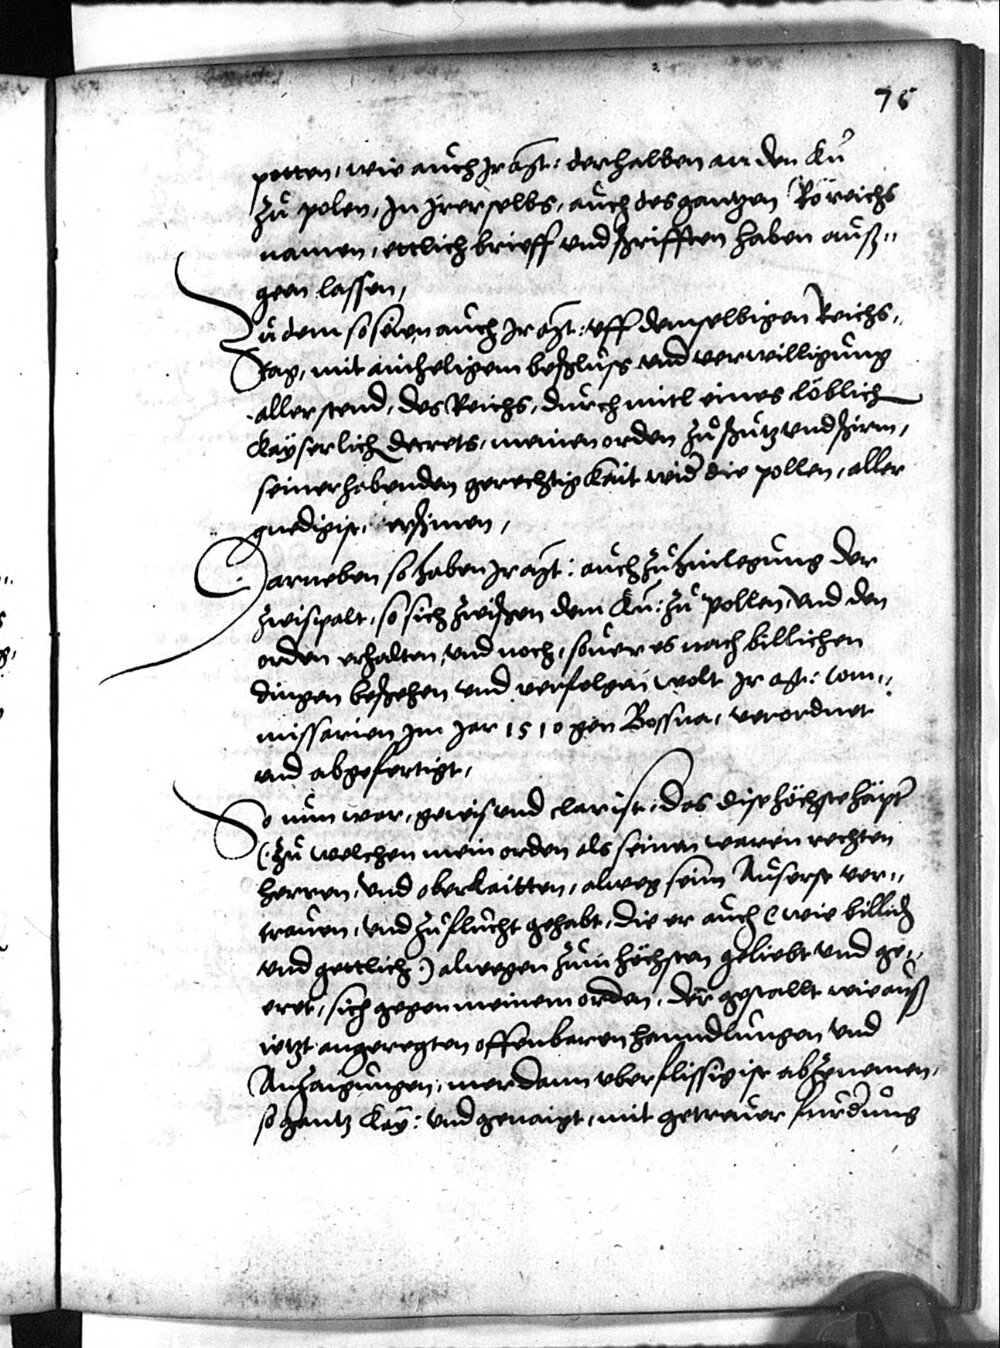 76
petten, wie auch Jr Mt: derhalben an den Kü
zu polen, In Irer selbs, auch des gantzen Rö reichs
namen, ettlich brieff und schrifften haben auß„
geen lassen,
Zu dem so seien auch Jr Mt: uff demselbigen Reichs„
Tag, mit ainheligem beschluss und verwilligung
aller stend, des Reichs, durch mitl eines löblich
Kayserlich decrets, meinen orden zu schutz und schirm,
seiner habenden gerechtigkait wid die pollen, aller
gnedigist, erschinen,
Darneben so haben Jr Mt: auch zu hinlegung der
zwispalt, so sich zwischen dem Kü: zu pollen, und den
orden erhalten, und noch, sover es nach billichen
dingen beschehen und verfolgen wolt Jr Mt: com„
missarien Im Jar 1510 gen Bossna, verordnet
und abgefertigt,
So nun war, gewis und clar ist, das dise höchste häpt
(: zu welchen mein orden als seinen waren rechten
herren, und oberkaitten, alweg sein Auserst ver„
trauen, und zuflucht gehabt, die er auch (wie billich
und gottlich:) alwegen zum höchsten geliebt und ge„
eret, sich gegen meinem orden, der gestallt wie auß
ietzt angeregten offenbaren hanndlungen und
Anzaigungen, mer dann uberflissig ist abzenemen,
so gantz Kay: und genaigt, mit getreuer furdrung